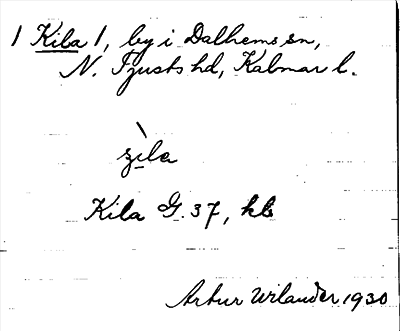 1 Kila 1, by i Dalhems sn,
N. Tjusts hd, Kalmar l.
zìla
Kila G. 37, kb
Artur Wilander 1930